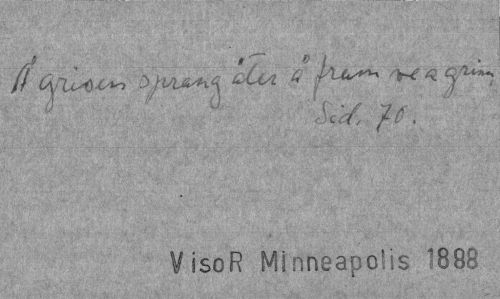 Å grisen sprang åter å fram ve a grinn
Sid. 70.
VisoR MInneapolis 1888